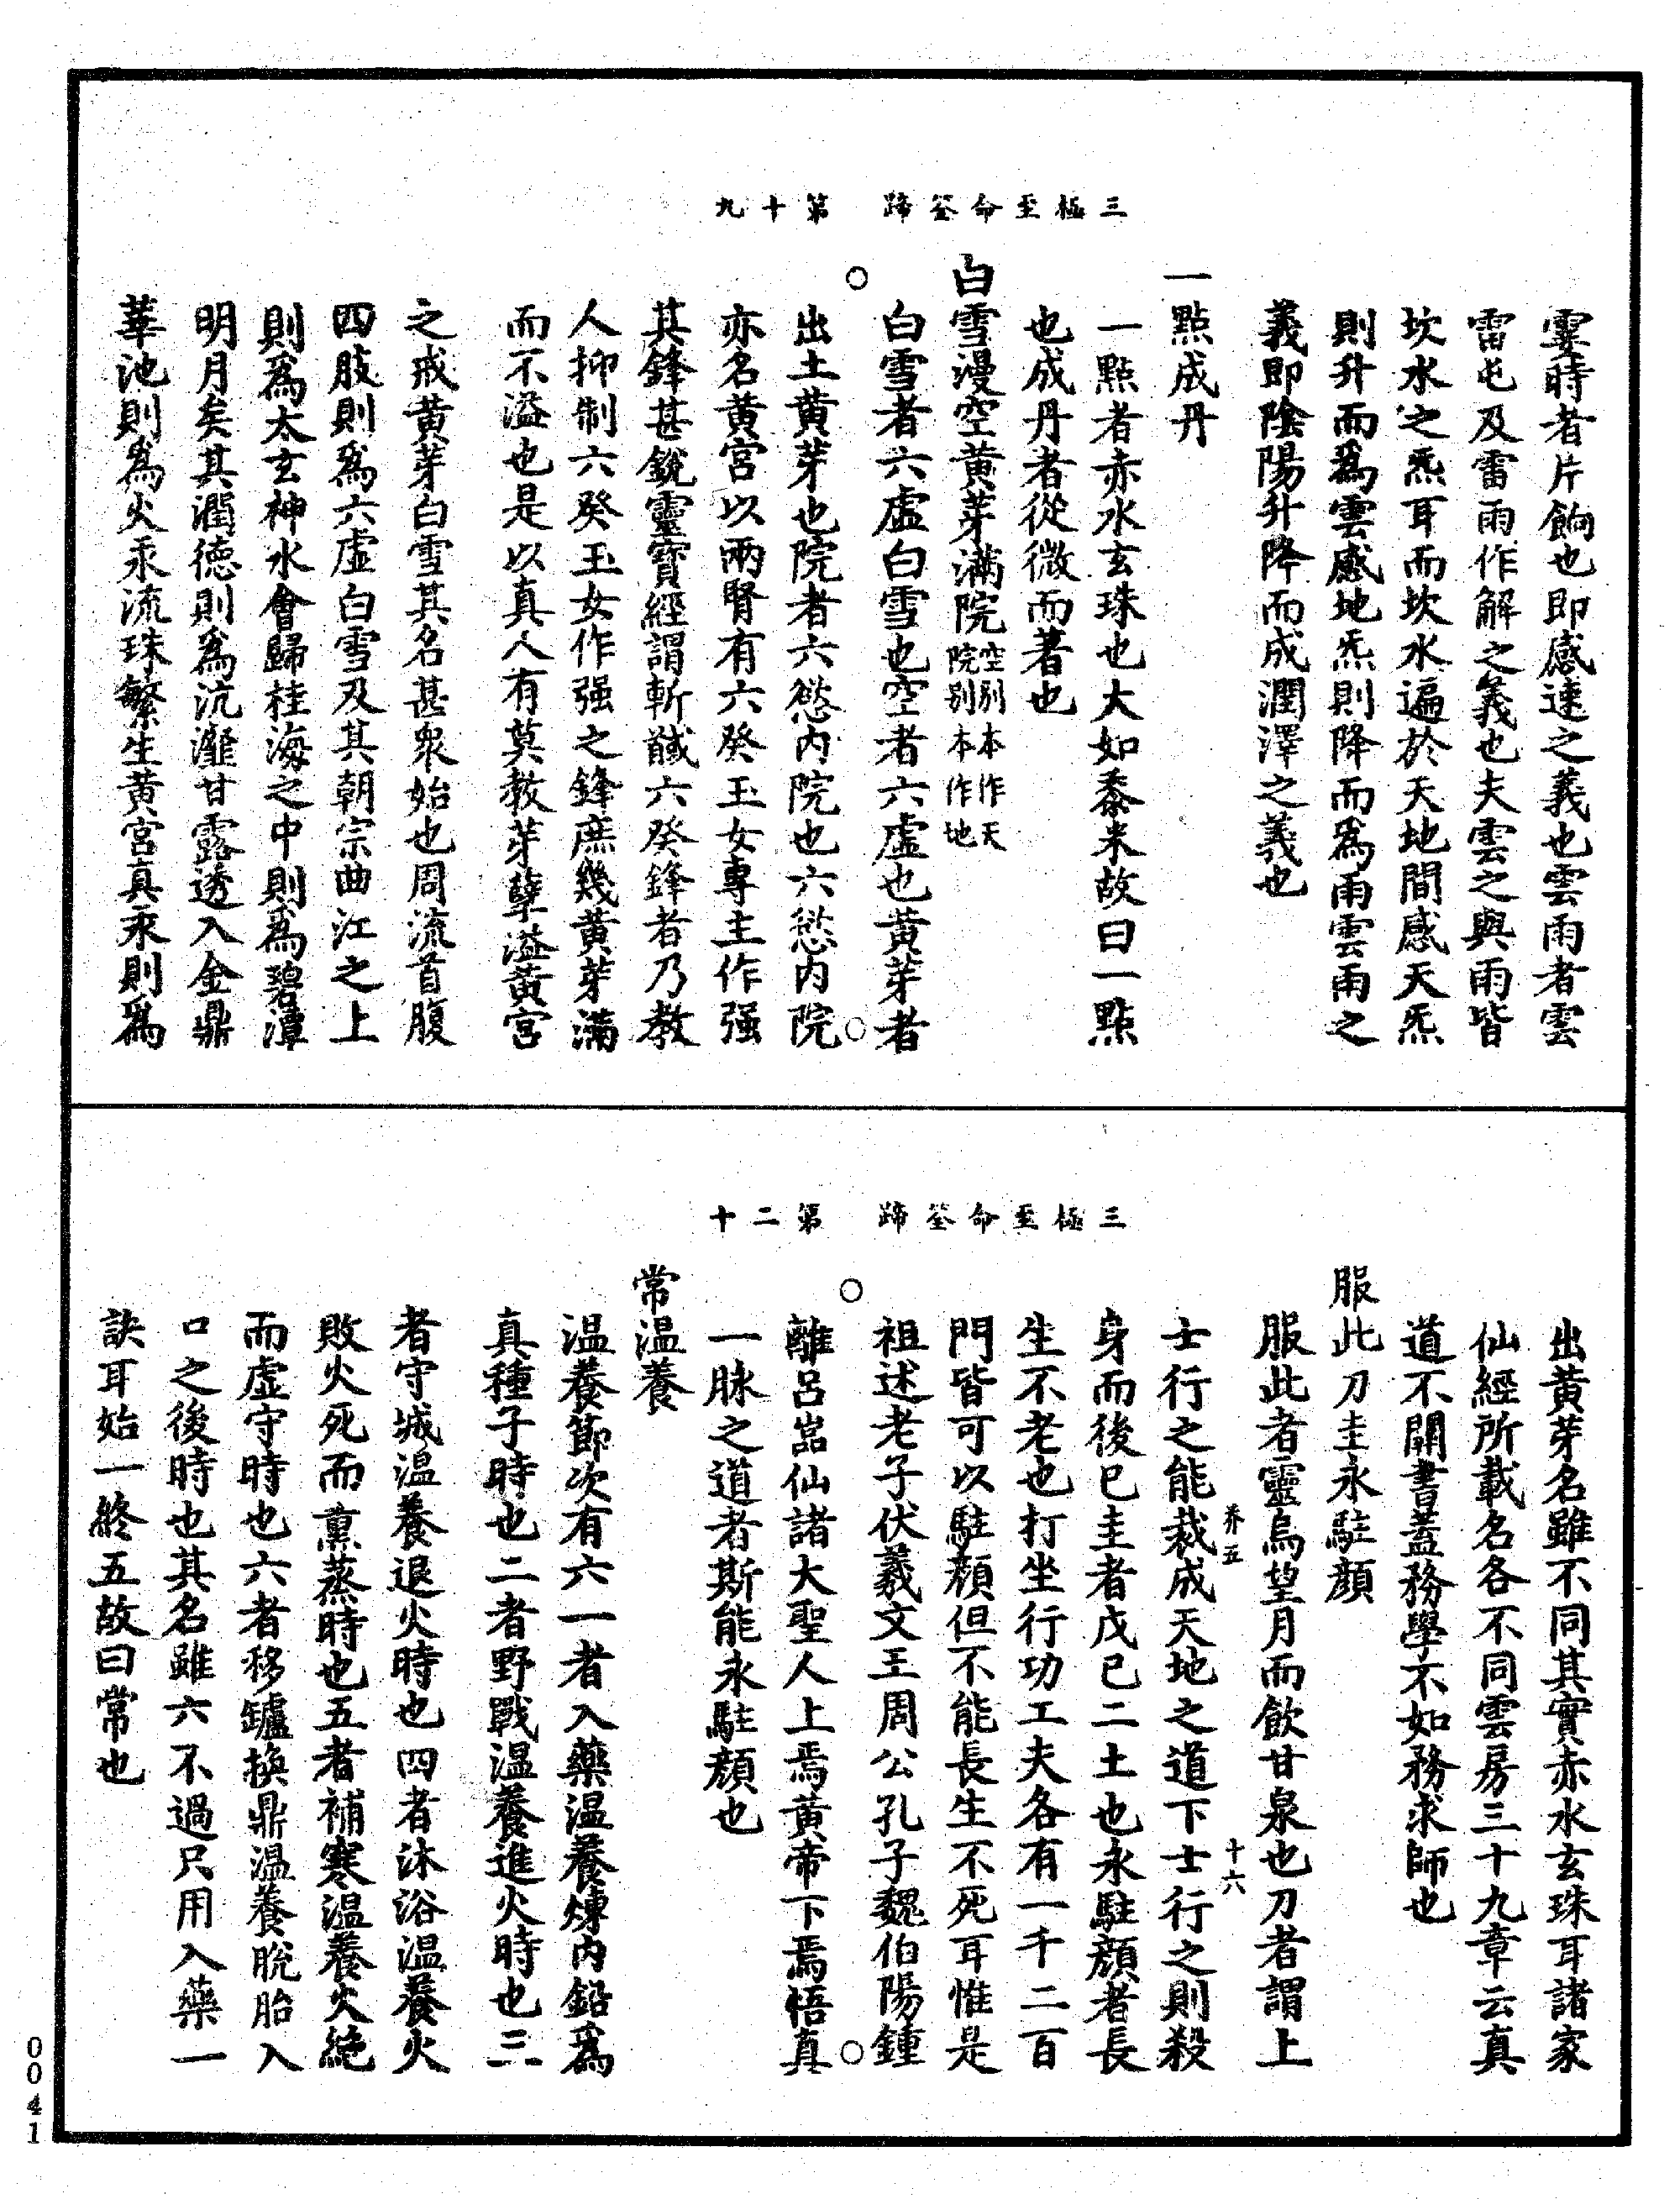 三極至命筌蹄　第十九
霎時者片餉也即感速之義也雲雨者雲
雷屯及雷雨作解之義也夫雲之與雨皆
坎水之炁耳而坎水遍於天地間感天炁
則升而爲雲感地炁則降而爲雨雲雨之
義即陰陽升降而成潤澤之義也
一點成丹
一點者赤水玄珠也大如黍米故曰一點
也成丹者從微而著也
白雪漫空黃芽滿院空別本作天院別本作地
白雪者六虛白雪也空者六虛也黃芽者
○　○
出土黃芽也院者六慾內院也六慾內院
亦名黃宮以兩腎有六癸玉女專主作强
其鋒甚銳靈寶經謂斬馘六癸鋒者乃教
人抑制六癸玉女作强之鋒庶幾黃芽滿
而不溢也是以真人有莫教芽孽溢黃宮
之戒黃芽白雪其名甚衆始也周流首腹
四肢則爲六虛白雪及其朝宗曲江之上
則爲太玄神水會歸桂海之中則爲碧潭
明月矣其潤德則爲沆瀣甘露透入金鼎
華池則爲火汞流珠繁生黃宮真汞則爲
三極至命筌蹄　第二十
出黃芽名雖不同其實赤水玄珠耳諸家
仙經所載名各不同雲房三十九章云真
道不關書蓋務學不如務求師也
服此刀圭永駐顔
服此者靈烏望月而飲甘泉也刀者謂上
养五　十六
士行之能裁成天地之道下士行之則殺
身而後已圭者戊己二土也永駐顔者長
生不老也打坐行功工夫各有一千二百
門皆可以駐顔但不能長生不死耳惟是
祖述老子伏羲文王周公孔子魏伯陽鍾
○　○
離呂嵓仙諸大聖人上焉黃帝下焉悟真
一脉之道者斯能永駐顔也
常温養
温養節次有六一者入藥温養煉内鉛爲
真種子時也二者野戰温養進火時也三
者守城温養退火時也四者沐浴温養火
敗火死而熏蒸時也五者補寒温養火絶
而虛守時也六者移鑪換鼎温養脫胎入
口之後時也其名雖六不過只用入藥一
訣耳始一終五故曰常也
0041